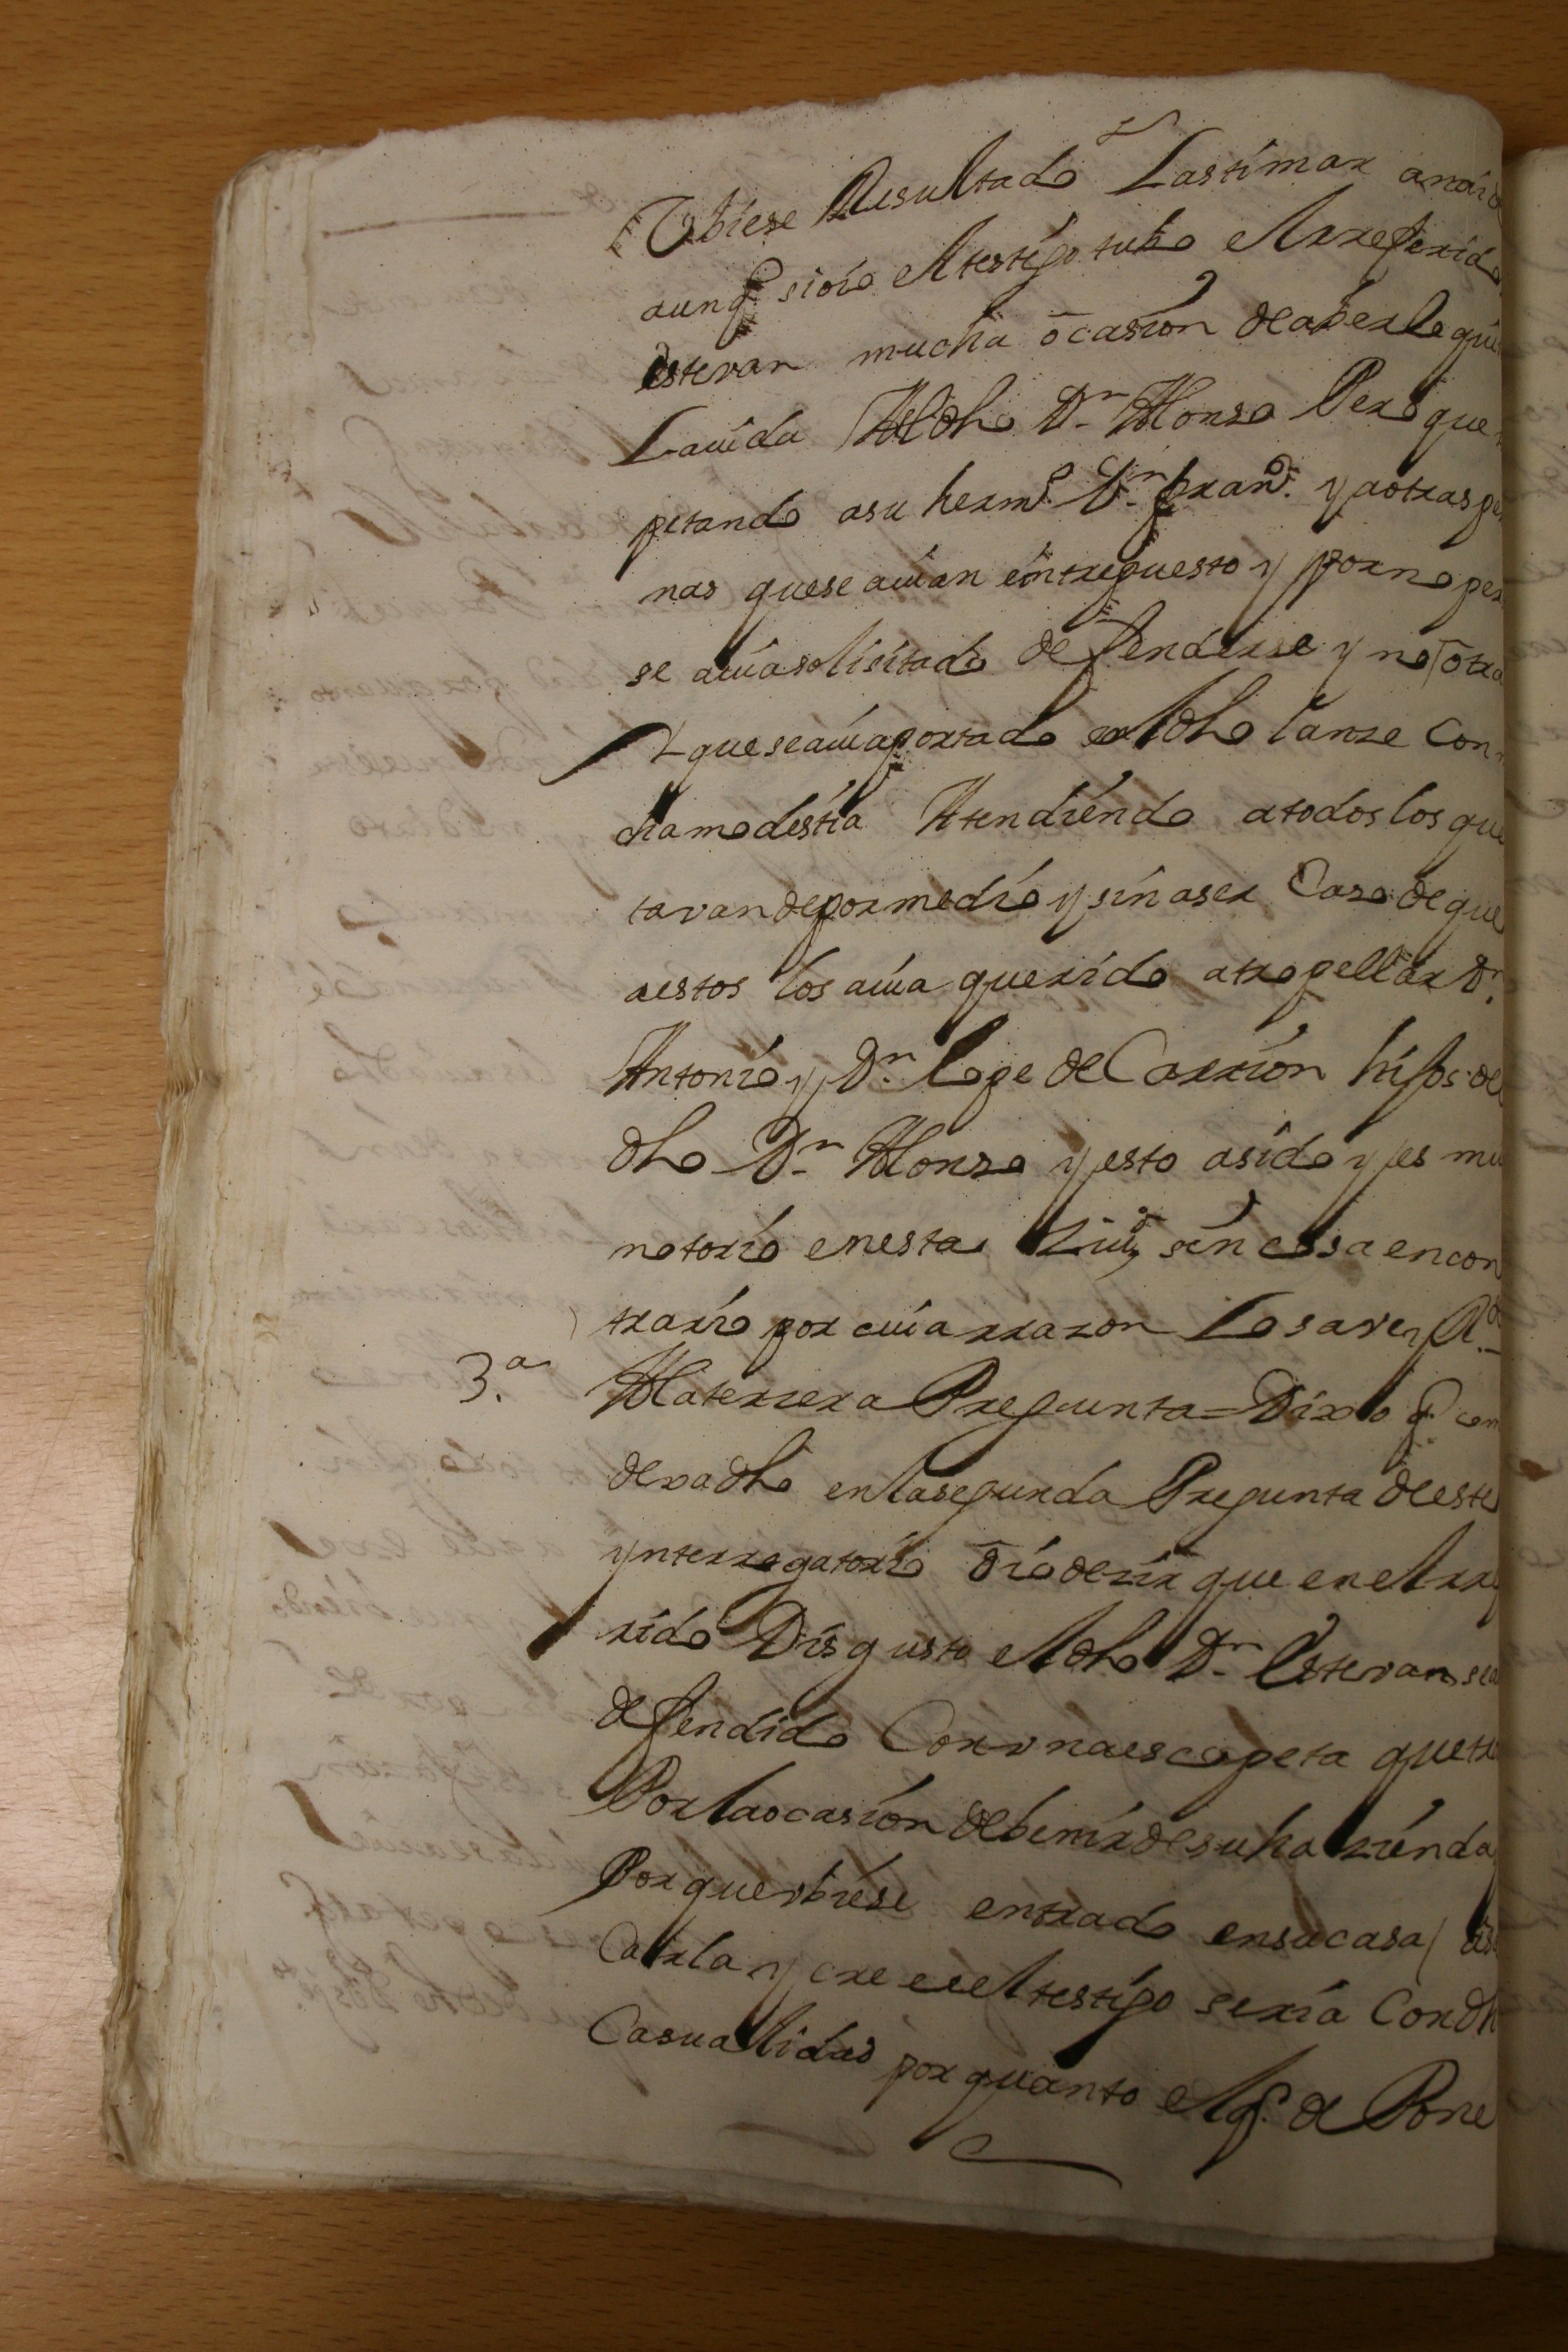 Vbiese Resultado Lastimar anai
aunq. si oio el testigo tubo el Rreferid
Estevan mucha ocasion de aberle qui
La uida Al dho Dn Alonso Pero que
petando a su hermo. Dn. franco. y a otras pe
nas que se auian entrepuesto y por no per
se auia solisitado defenderse y no otra
Y que se auia portado en el dho lanze Con
cha modestia Atendiendo a todos los que
tavan de por medio y sin aser Caso de que
a estos los auia querido atropellar Dn.
Antonio y Dn. Lope de Carrion hijos de
dho Dn Alonso y esto a sido y es mu
notorio en esta Ziud sin cossa en con
trario por cuia rrazon Lo save y Rde
3.a A la terzera Pregunta = Dixo q. com
deva dho en la segunda Pregunta de este
ynterrogatorio oio dezir que en el rre
rido Disgusto el dho Dn Estevan se a
defendido Con vna escopeta que tr
Por la ocasion de benir de su hazienda
Por que vbiese entrado en su casa a s
Carla y cree el testigo seria Con dh
Casualidad por quanto el q. de Pone